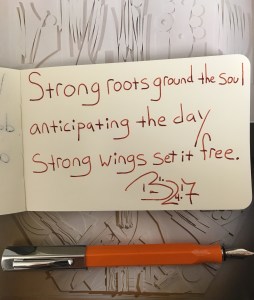 Strong roots ground the soul
anticipating the day
Strong wings set it free.